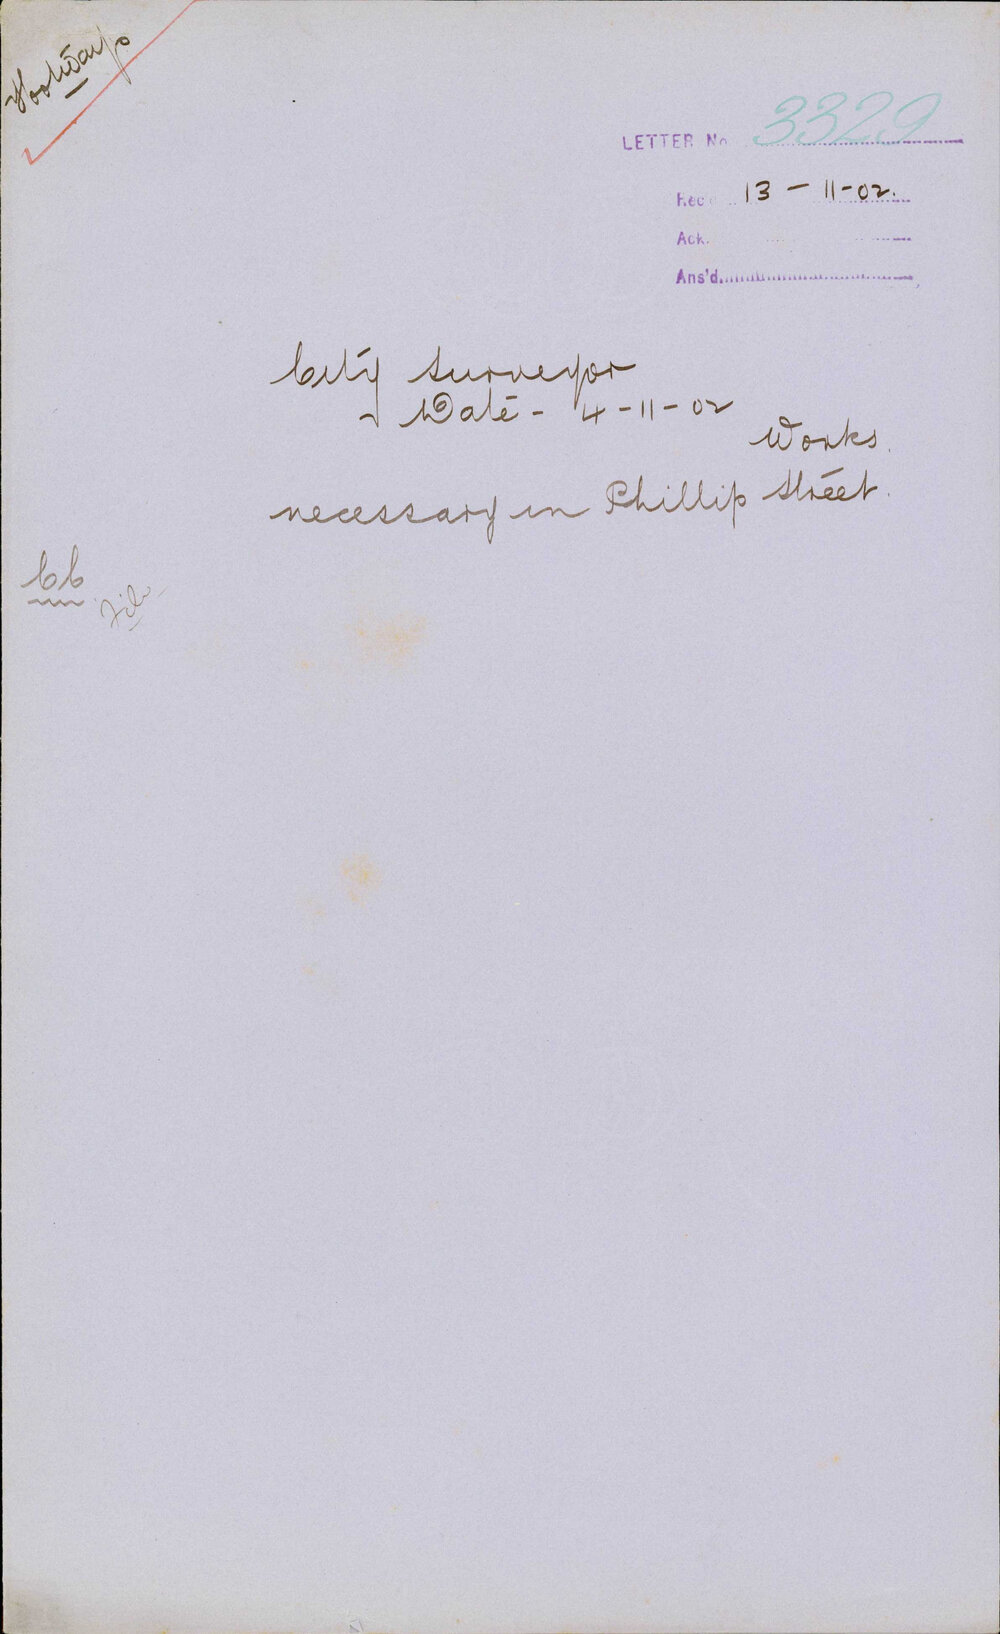 Footways
LETTER No 3329
Rec 13-11-02.
Ack.
Ans'd.
City Surveyor
Date - 4-11-02
Works
necessary in Phillip Street.
File